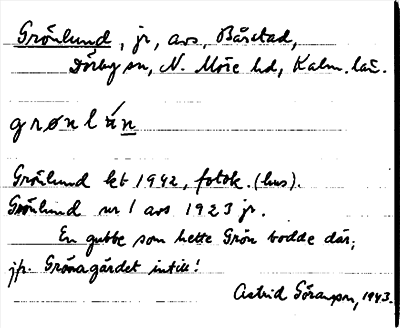 Grönlund, jr, avs, Bårstad,
Dörby sn, N. Möre hd, Kalm. län.
grønlń̲n̲
Grönlund kbt 1942, fotok. (hus).
Grönlund nr 1 avs 1923 jr.
En gubbe som hette Grön bodde där,
jfr. Grönagärdet intill!
Astrid Göransson, 1943.